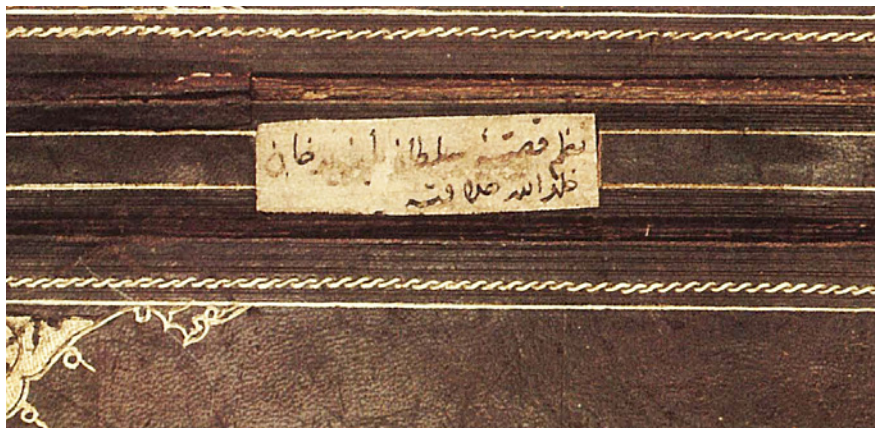 نظم قصۀ سلطان بايزيد خان
خلد الله خلافته